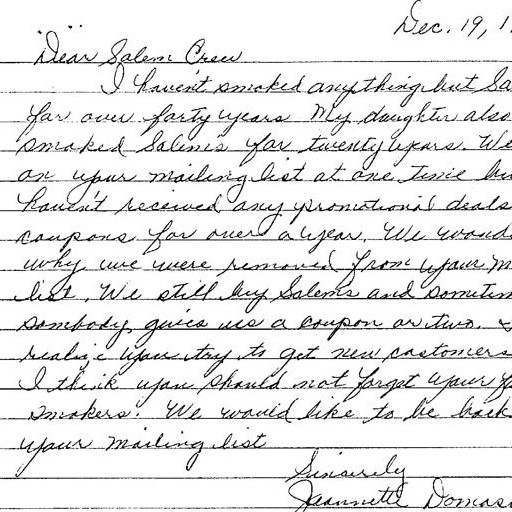 Dec. 19, 1
Dear Salem Crew
I haven't smoked anything but Sa
for over forty years My daughter also
smoked Salems for twenty years. We
on your mailing list at one time bu
haven't received any promotional deals
coupons for over a year. We wonde
why we were removed from your m
list. We still buy Salems and sometim
sombody gives us a coupon or two.
realize you try to get new customers
I think you should not forget your f
smokers. We would like to be back
your mailing list
Sinserily
Jeannette Domas